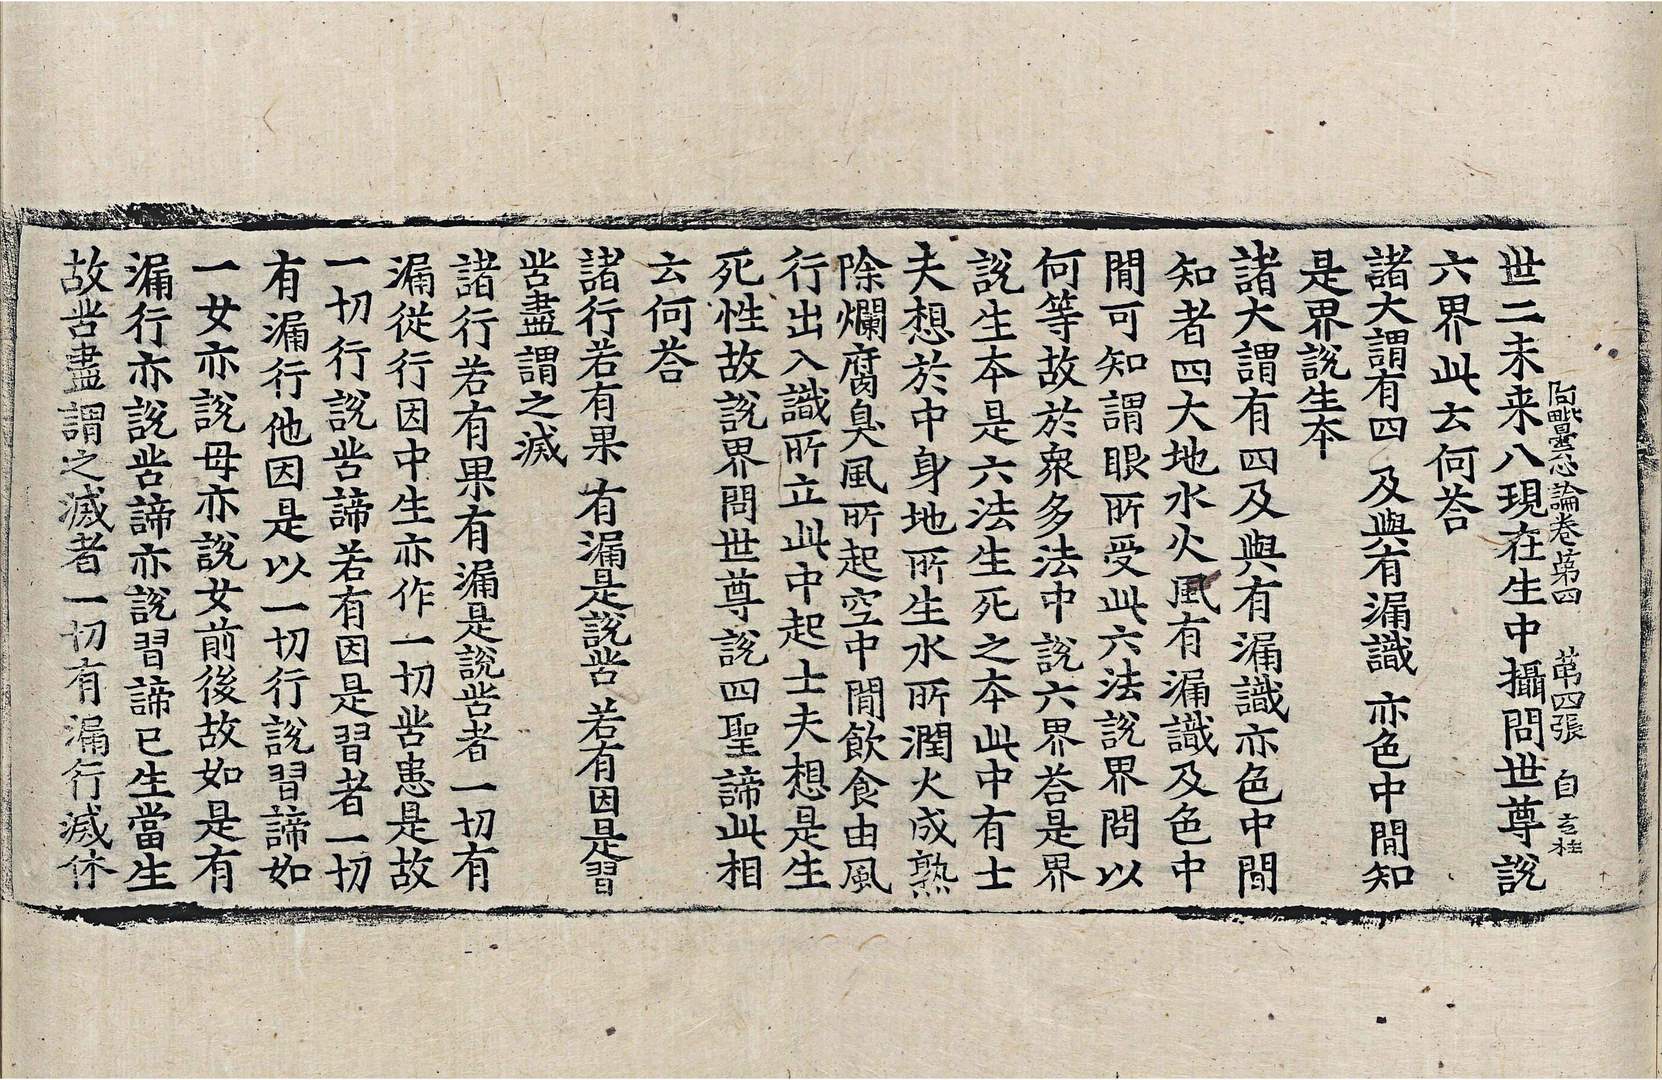 世二未来八現在生中攝問世尊說
阿毗曇心論卷第四 第四張 自
六界此云何荅
諸大謂有四 及與有漏識 亦色中間知
是界說生夲
諸大謂有四及與有漏識亦色中間
知者四大地水火風有漏識及色中
間可知謂眼所受此六法說界問以
何等故於衆多法中說六界荅是界
說生夲是六法生死之夲此中有士
夫想於中身地所生水所潤火成熟
除爛腐臭風所起空中間飲食由風
行出入識所立此中起士夫想是生
死性故說界問世尊說四聖諦此相
云何荅
諸行若有果 有漏是說苦 若有因是習
苦盡謂之滅
諸行若有果有漏是說苦者一切有
漏從行因中生亦作一切苦患是故
一切行說苦諦若有因是習者一切
有漏行他因是以一切行說習諦如
一女亦說母亦說女前後故如是有
漏行亦說苦諦亦說習諦已生當生
故苦盡謂之滅者一切有漏行滅休